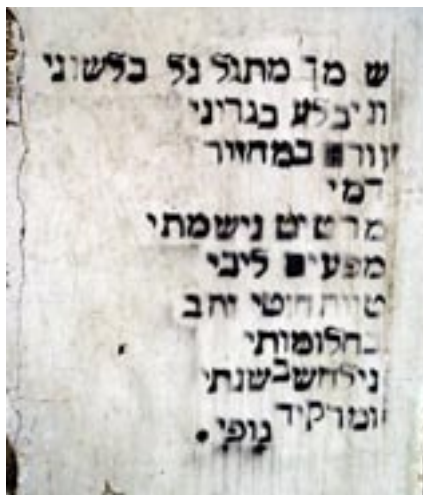 ש מן מתגל גל בלשוני
ניבלע בגרוני
זורם במחזור
דמי
מרטיט נישמתי
מפעים ליבי
טווה חוטי זהב
בחלומותי
נילחש בשנתי
ומרקיד גופי.